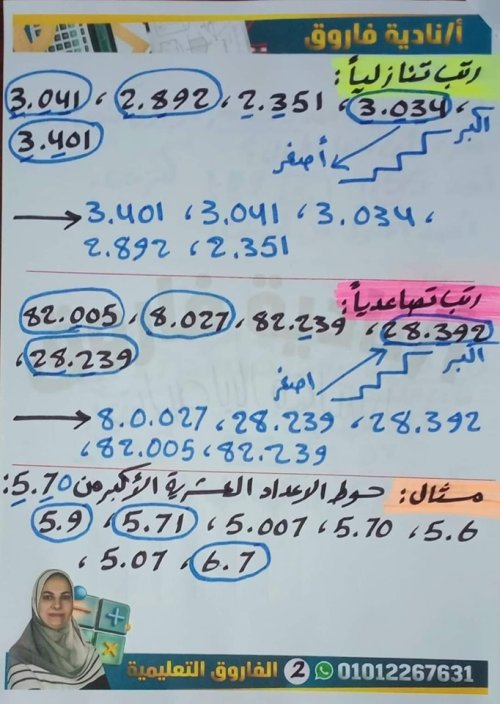 أ/نادية فاروق
رتب تنازلياً:
3.041 ، 2.892 ، 2.351 ، 3.034 ،
3.401
أكبر
أصغر
3.401 ، 3.041 ، 3.034 ،
2.892 ، 2.351
رتب تصاعدياً:
82.005 ، 8.027 ، 82.239 ، 28.392
، 28.239
اكبر
اصغر
8.0.027 ، 28.239 ، 28.392
، 82.005 ، 82.239
مثال: حوط الاعداد العشرية الأكبر من 5.70:
5.9 ، 5.71 ، 5.007 ، 5.70 ، 5.6
، 5.07 ، 6.7
الفاروق التعليمية 2 01012267631